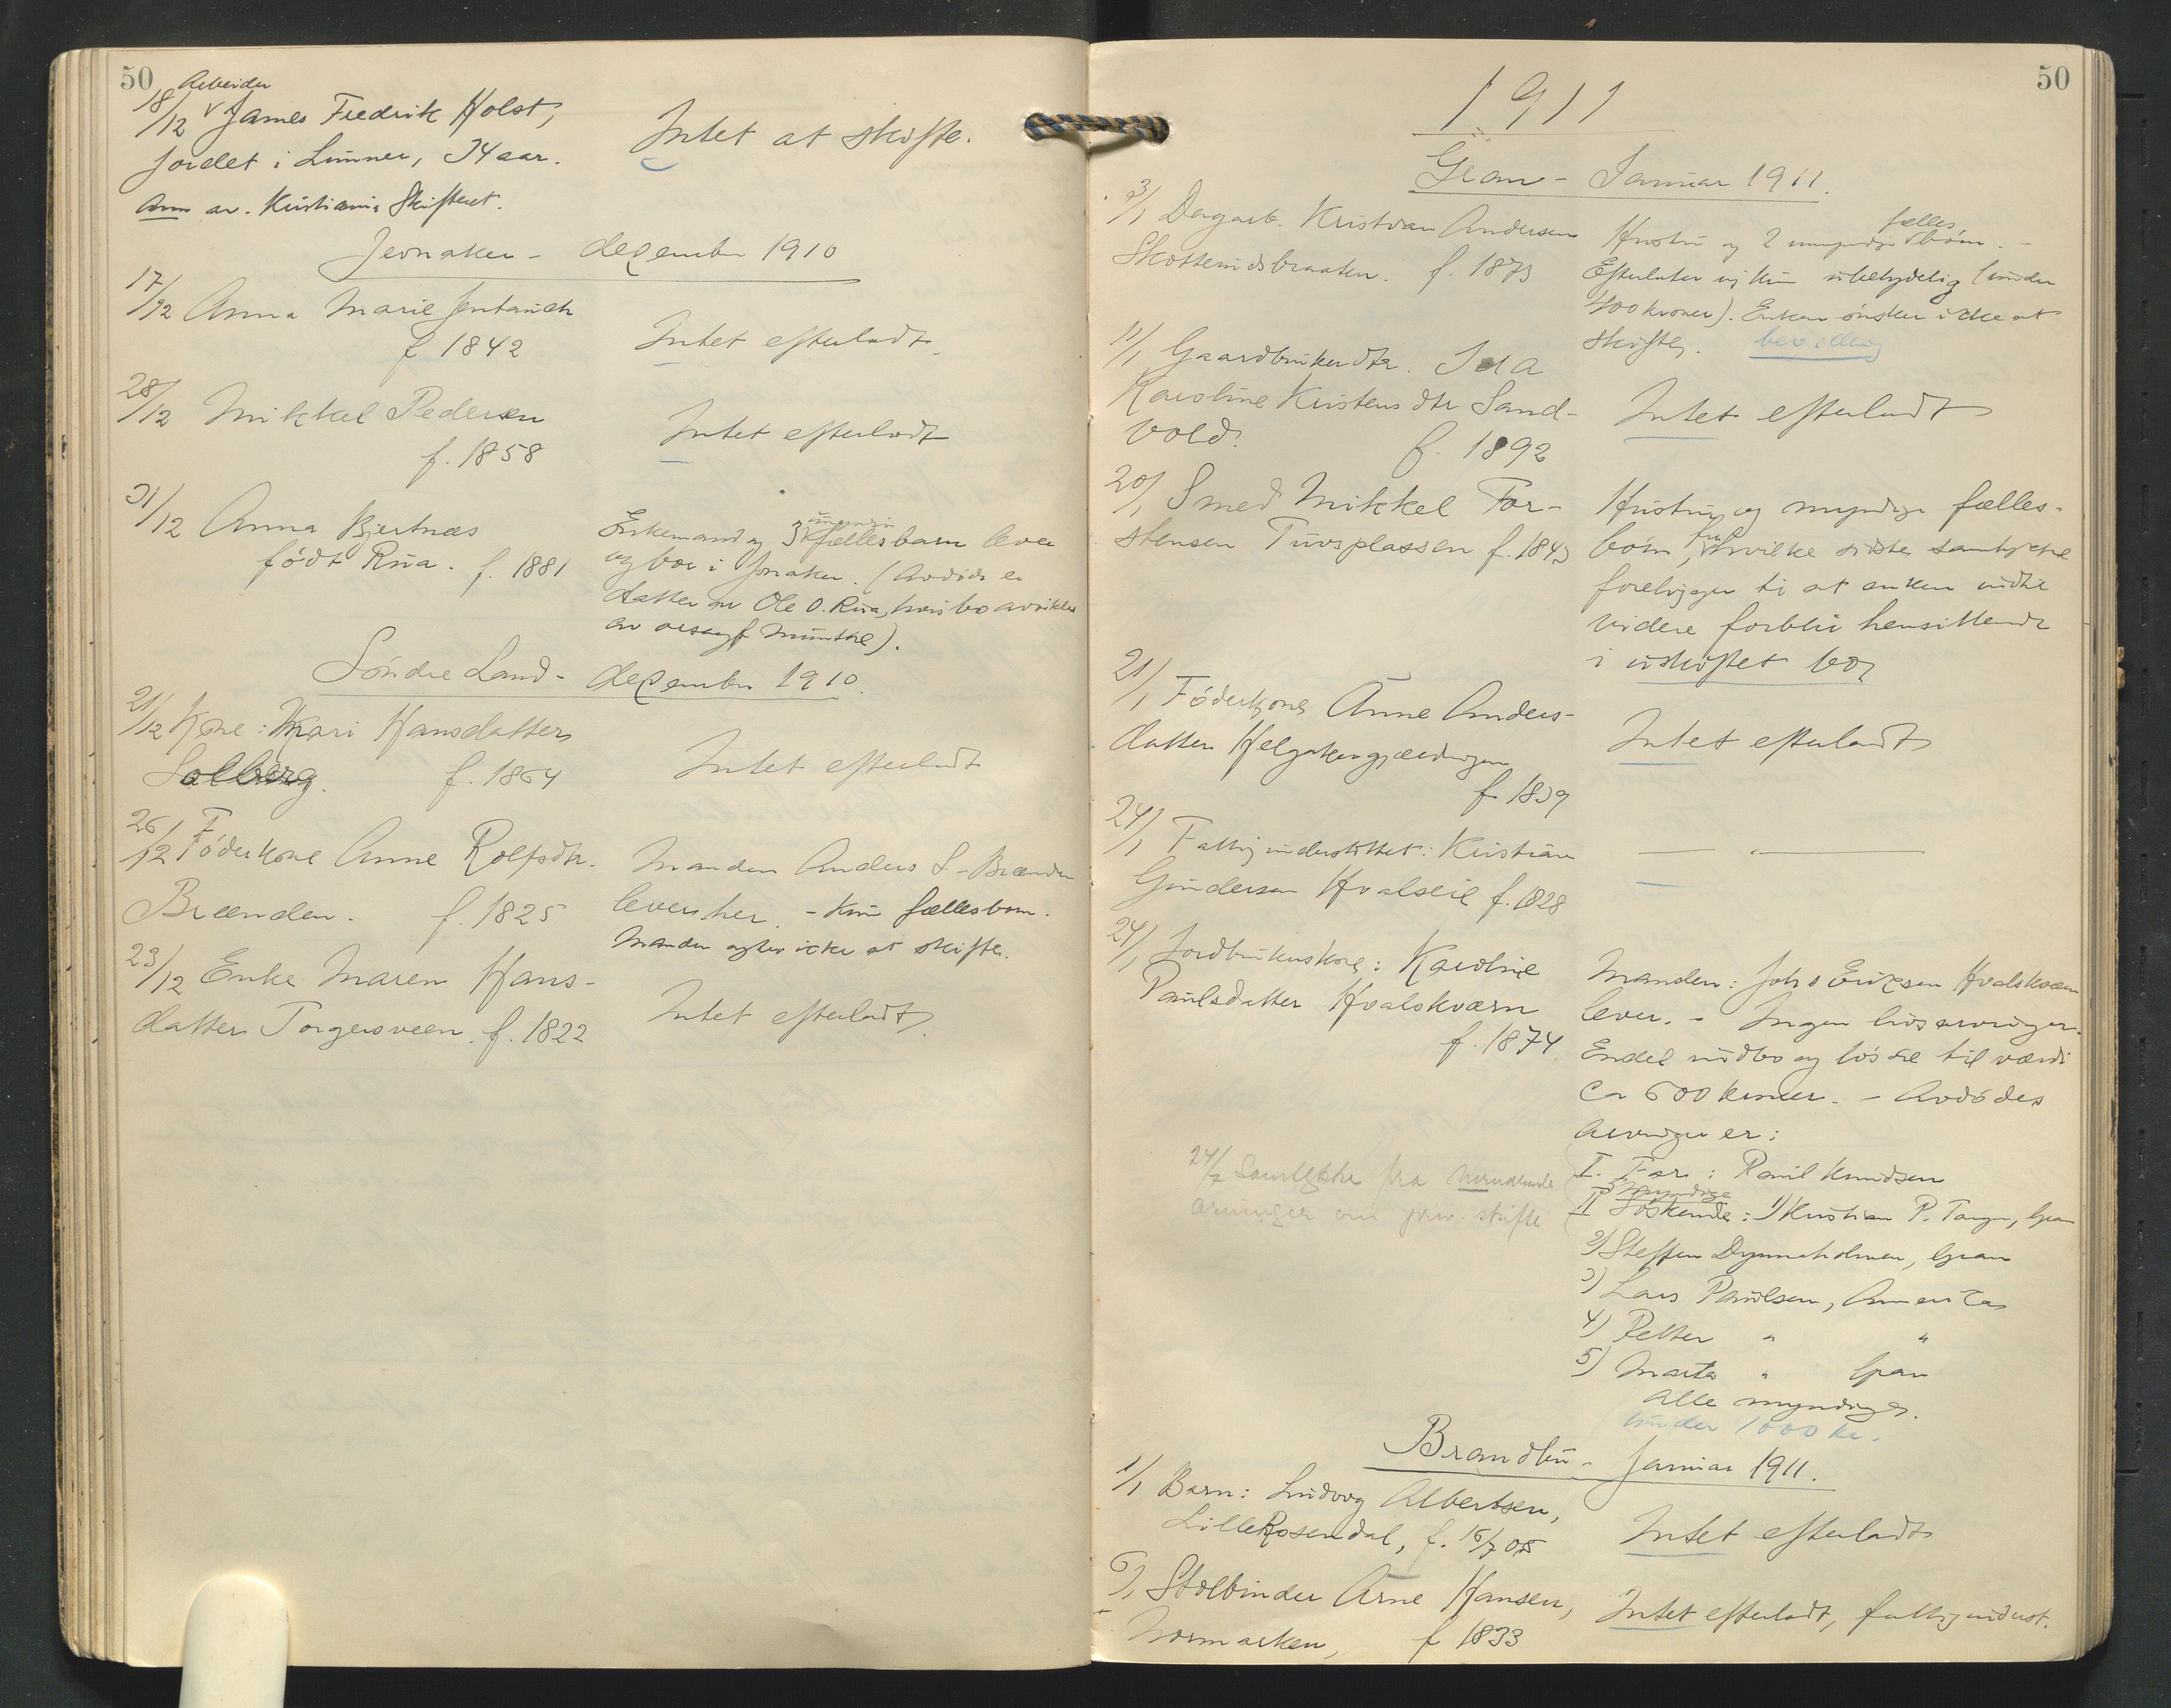 50
Arbeider
18/12 James Fredrik Holst,
Jordet i Lunner, 34 aar.
Intet at skifte.
Anm av. Kristiania Skifteret.
Jevnaker - dezember 1910
17/12 Anna Marie Jentauch
f 1842
Intet efterladt.
28/12 Mikkel Pedersen
f. 1858
Intet efterladt
31/12 Anna Bjertnæs
født Rua. f. 1881
Enkemand og 3 umyndige fællesbarn lever
og bor i Jevnaker. (Avdøde er
datter av Ole O. Rua, hvis bo avvikles
av orsagf Munthe).
Søndre Land - dezember 1910.
21/12 Kone: Mari Hansdatter
Solberg. f. 1864
Intet efterladt
26/12 Føderkone Anne Rolfsdtr.
Brænden. f. 1825
Manden Anders L. Brænden
lever her. - Kun fællesbørn.
Manden agter ikke at skifte.
23/12 Enke Maren Hans-
datter Torgersveen. f. 1822
Intet efterladt.
50
1911
Gran - Januar 1911.
3/1 Dagarb. Kristian Andersen
Skottenidsbraaten. f. 1873
Hustru og 2 umyndige fælles børn. -
Efterlater sig kun ubetydelig (under
400 kroner). Enken ønsker ikke at
skifte. bevilling
11/1 Gaardbrukerdtr. Ida
Karoline Kristensdtr Sand-
vold. f. 1892
Intet efterladt
20/1 Smed Mikkel Tor-
stensen Tuvsplassen f. 1843
Hustru og myndige fælles-
børn, fra hvilke sidste samtykke
foreligger til at enken indtil
videre forblir hensittende
i uskiftet bo.
21/1 Føderkone Anne Anders-
datter Helgakergjerdingen
f 1839
Intet efterladt
24/1 Fattigunderstøttet: Kristian
Gundersen Hvalseie f. 1828
— " —
24/1 Jordbrukerskone: Karoline
Paulsdatter Hvalskværn
f. 1874
Manden: Johs Eriksen Hvalskværn
lever. - Ingen livsarvinger.
Endel indbo og løsøre til værdi
ca 600 kroner. - Avdødes
arvinger er:
I. Far: Paul Knudsen
5 myndige
II Søskende: 1) Kristian P. Tangen, Gran
2) Steffen Dynnaholmen, Gran
3) Lars Paulsen, Amerika
4) Petter " "
5) Marta " Gran
alle myndige.
under 1000 kr.
24/2 Samtykke fra nærværende
arvinger om priv. skifte
Brandbu - Januar 1911.
1/1 Barn: Ludvig Albertsen,
LilleRosendal, f. 16/7 08
Intet efterladt
6/1 Stolbinder Arne Hansen,
Normarken, f 1833
Intet efterladt, fattigunderst.